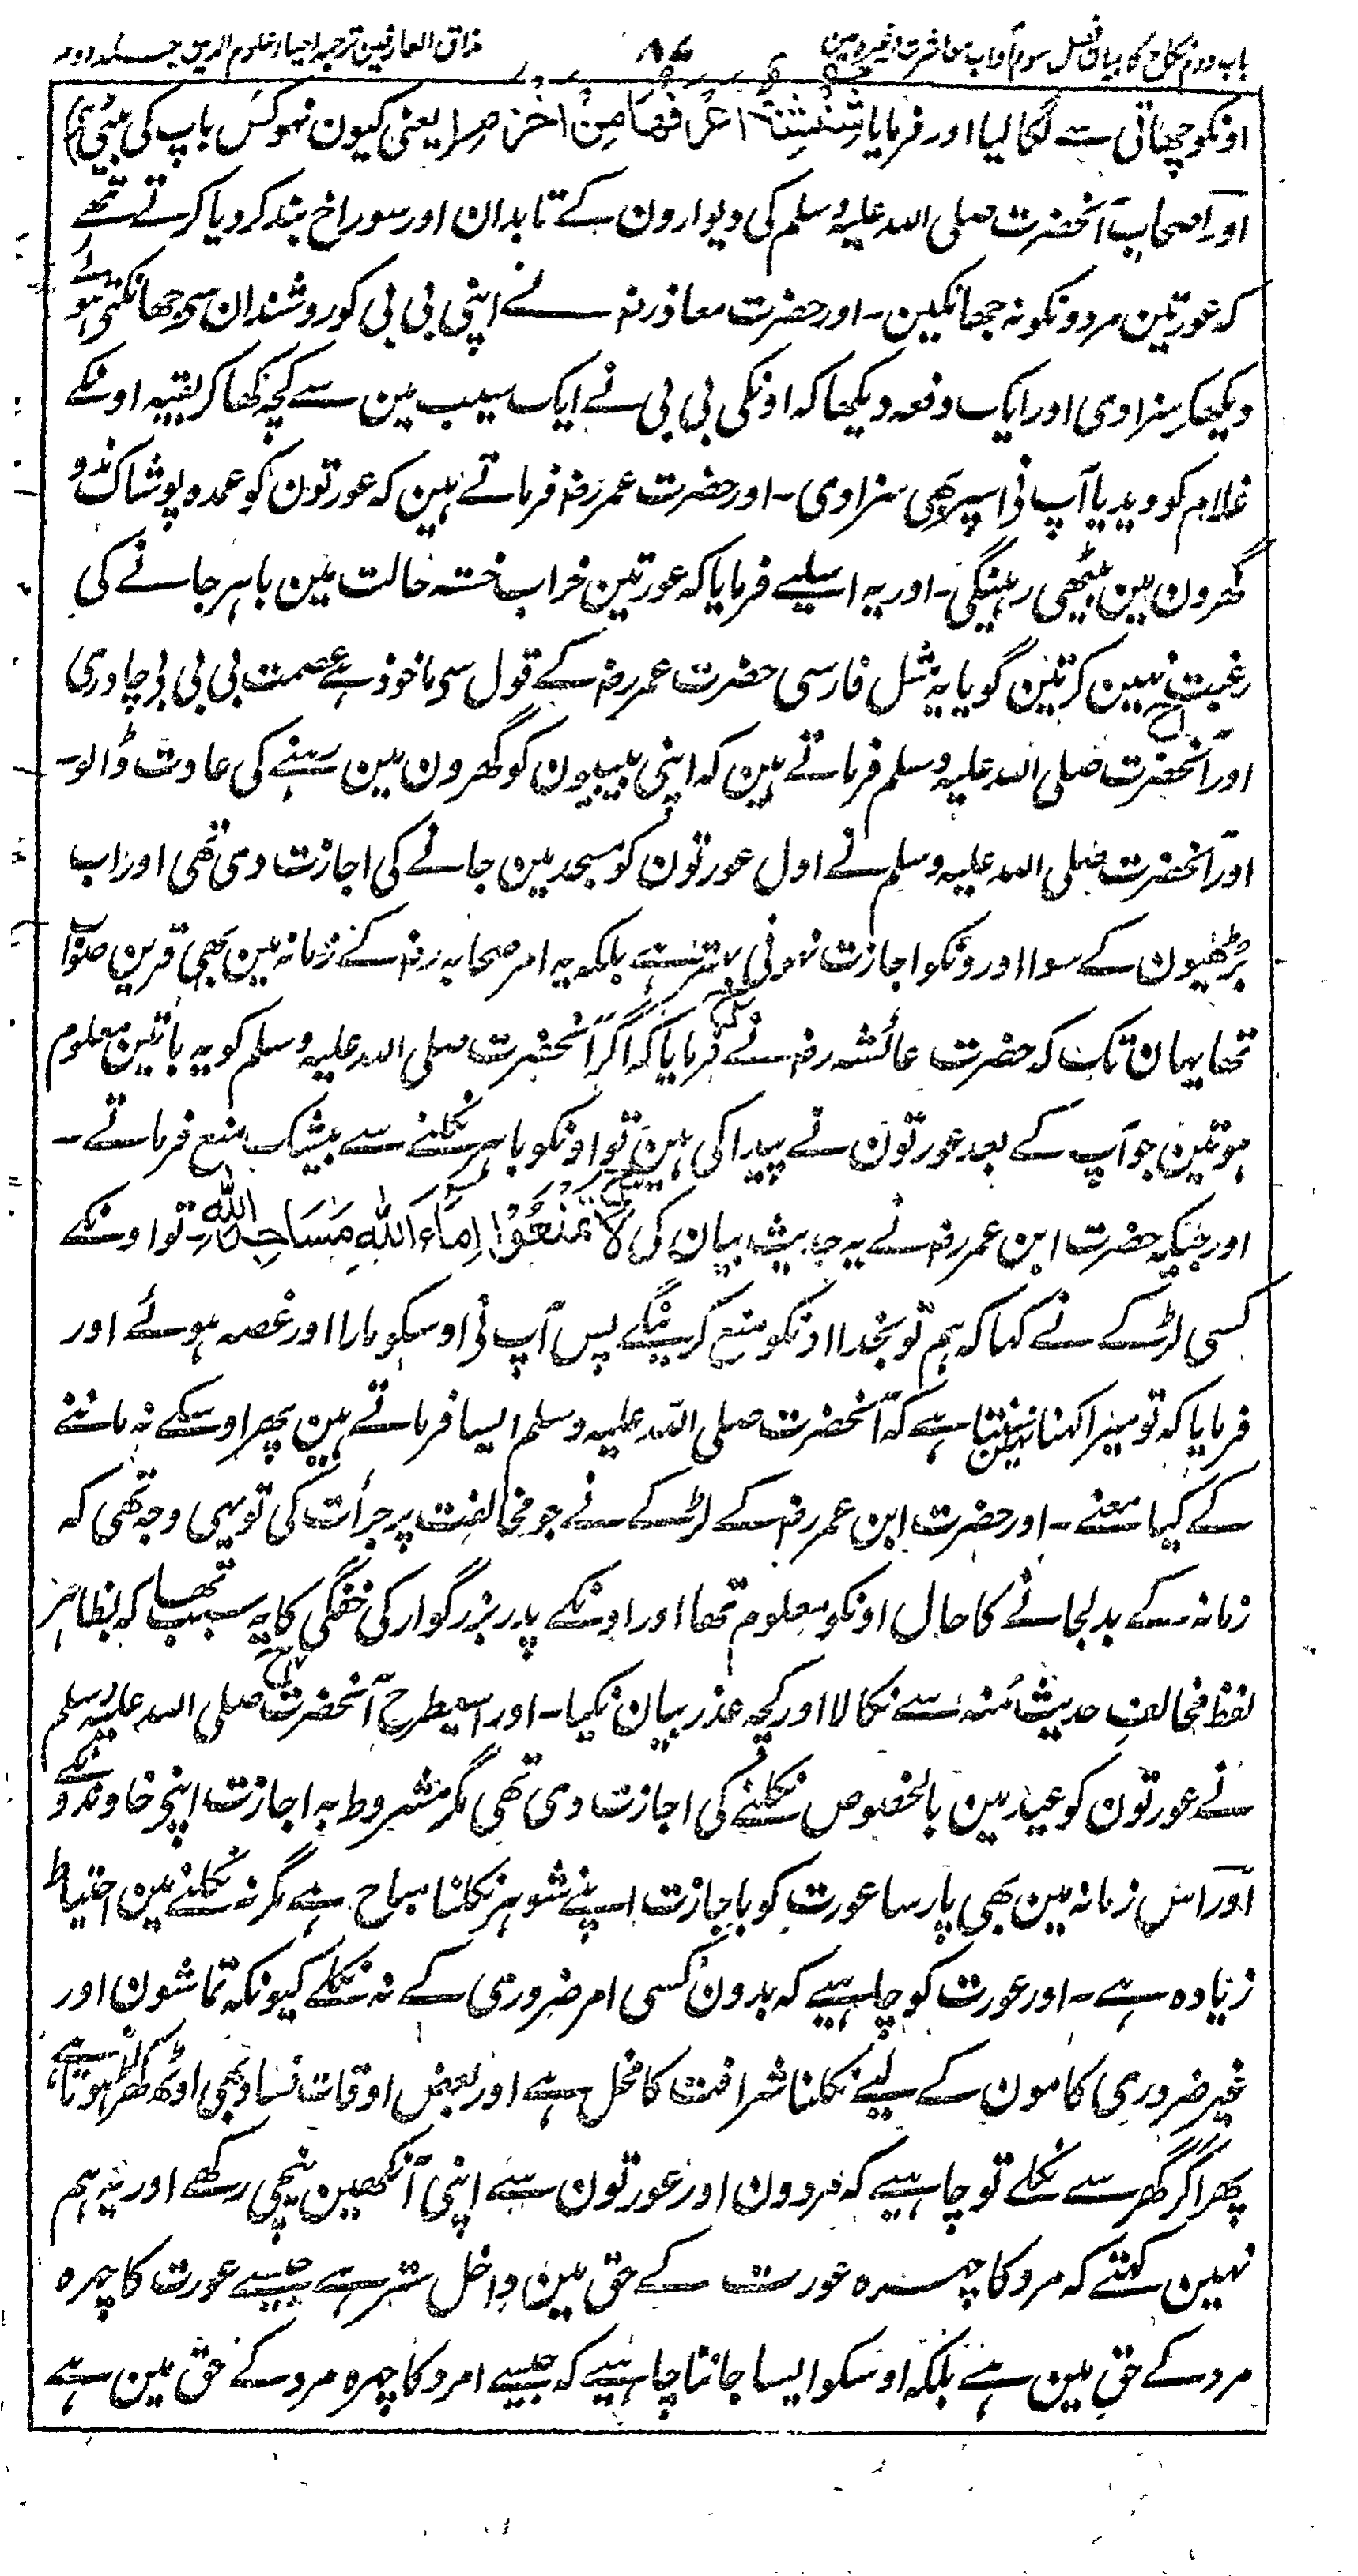 باب دوم نکاح کا بیان فصل سوم آداب معاشرت وغیرہ مین ۸۶ مذاق العارفین ترجمہ احیاء علوم الدین جلد دوم
اونکو چھاتی سے لگا لیا اور فرمایا (شِنْشِنَةٌ اَعْرِفُهَا مِنْ اَخْزَمِ یعنی کیون نہو کس باپ کی بیٹی ہی)
اور اصحاب آنحضرت صلی اللہ علیہ وسلم کی دیوارون کے تابدان اور سوراخ بند کر دیا کرتے تھے
کہ عورتین مردونکو نہ جھانکین۔ اور حضرت معاذ رضہ نے اپنی بی بی کو روشندان سی جھانکتے ہوئے
دیکھکر سزا دی اور ایک دفعہ دیکھا کہ اونکی بی بی نے ایک سیب مین سے کچھ کھا کر بقیہ اونکے
غلام کو دیدیا آپ نی اسپر بھی سزا دی۔ اور حضرت عمر رضہ فرماتے ہین کہ عورتون کو عمدہ پوشاک ندو
گھرون مین بیٹھی رہینگی۔ اور یہ اسلیے فرمایا کہ عورتین خراب خستہ حالت مین باہر جانے کی
رغبت نہین کرتین گویا یہ مثل فارسی حضرت عمر رضہ کے قول سی ماخوذ ہے ع عصمت بی بی بی چادری
اور آنحضرت صلی اللہ علیہ وسلم فرماتے ہین کہ اپنی بیبیون کو گھرون مین رہنے کی عادت ڈالو۔
اور آنحضرت صلی اللہ علیہ وسلم نے اول عورتون کو مسجد مین جانے کی اجازت دی تھی اور اب
بڑھیون کے سوا اورونکو اجازت نہونی بہتر ہے بلکہ یہ امر صحابہ رضہ کے زمانہ مین بھی قرین صواب
تھا یہان تک کہ حضرت عائشہ رضہ نے فرمایا کہ اگر آنحضرت صلی اللہ علیہ وسلم کو یہ باتین معلوم
ہوتین جو آپ کے بعد عورتون نے پیدا کی ہین تو اونکو باہر نکلنے سے بیشک منع فرماتے۔
اور جبکہ حضرت ابن عمر رضہ نے یہ حدیث بیان کی لَا تَمْنَعُوْا اِمَاءَ اللهِ مَسَاجِدَ اللهِ۔ تو اونکے
کسی لڑکے نے کہا کہ ہم تو بخدا اونکو منع کرینگے پس آپ نی اوسکو مارا اور غصہ ہوئے اور
فرمایا کہ تو میرا کہنا نہین سنتا ہے کہ آنحضرت صلی اللہ علیہ وسلم ایسا فرماتے ہین پھر اوسکے نہ ماننے
کے کیا معنے۔ اور حضرت ابن عمر رضہ کے لڑکے نے جو مخالفت پر جرأت کی تو یہی وجہ تھی کہ
زمانہ کے بدلجانے کا حال اونکو معلوم تھا اور اونکے پدر بزرگوار کی خفگی کا یہ سبب تھا کہ بظاہر
لفظ مخالف حدیث مُنہ سے نکالا اور کچھ عذر بیان نکیا۔ اور اسیطرح آنحضرت صلی اللہ علیہ وسلم
نے عورتون کو عید مین بالخصوص نکلنے کی اجازت دی تھی مگر مشروط بہ اجازت اپنی خاوندونکے
اور اس زمانہ مین بھی پارسا عورت کو باجازت اپنے شوہر نکلنا مباح ہے مگر نہ نکلنے مین احتیاط
زیادہ ہے۔ اور عورت کو چاہیے کہ بدون کسی امر ضروری کے نہ نکلے کیونکہ تماشون اور
غیر ضروری کامون کے لیے نکلنا شرافت کا مخل ہے اور بعض اوقات فساد بھی اوٹھ کھڑا ہوتا ہے
پھر اگر گھر سے نکلے تو چاہیے کہ مردون اور عورتون سے اپنی آنکھین نیچی رکھے اور یہ ہم
نہین کہتے کہ مرد کا چہرہ عورت کے حق مین داخل ستر ہے جیسے عورت کا چہرہ
مرد کے حق مین ہے بلکہ اوسکو ایسا جاننا چاہیے کہ جیسے امرد کا چہرہ مرد کے حق مین ہے